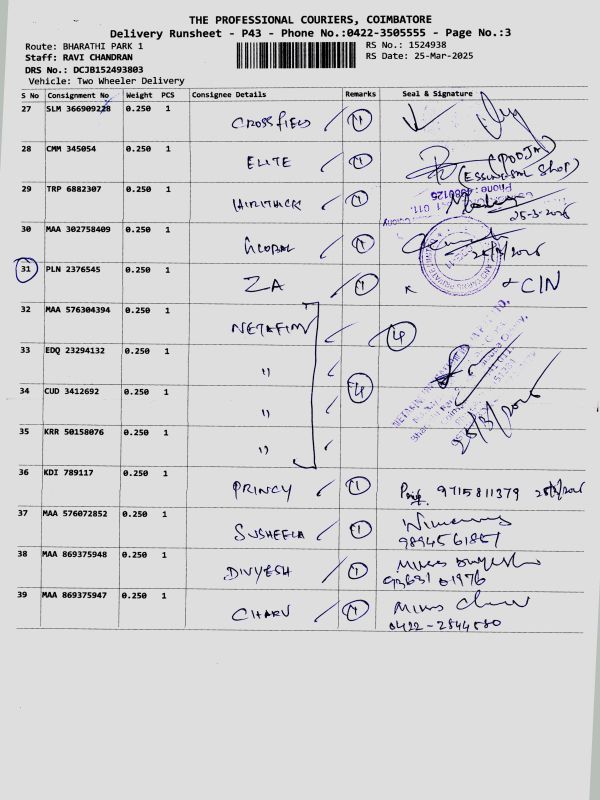 THE PROFESSIONAL COURIERS, COIMBATORE
Delivery Runsheet - P43 - Phone No.:0422-3505555 - Page No.:3
Route: BHARATHI PARK 1 RS No.: 1524938
Staff: RAVI CHANDRAN RS Date: 25-Mar-2025
DRS No.: DCJB152493803
Vehicle: Two Wheeler Delivery
S No Consignment No Weight PCS Consignee Details Remarks Seal & Signature
27 SLM 366909228 0.250 1 CROSSFIELD 1
28 CMM 345054 0.250 1 ELITE 1 (POOJA)
(ESSUNGSAL SHOP)
29 TRP 6882307 0.250 1 HAIRITHICK 1
Phone : 4980125
25-3-2025
30 MAA 302758409 0.250 1 GLOBAL 1
31 PLN 2376545 0.250 1 ZA 1 CIN
32 MAA 576304394 0.250 1 NETAFIM 4
33 EDQ 23294132 0.250 1 "
34 CUD 3412692 0.250 1 " 4
35 KRR 50158076 0.250 1 " 25/3/2025
36 KDI 789117 0.250 1 PRINCY 1 9715811379
37 MAA 576072852 0.250 1 SUSHEELA 1
9894561857
38 MAA 869375948 0.250 1 DIVYESH 1
93631 01976
39 MAA 869375947 0.250 1 CHARU 1
0422-2844580